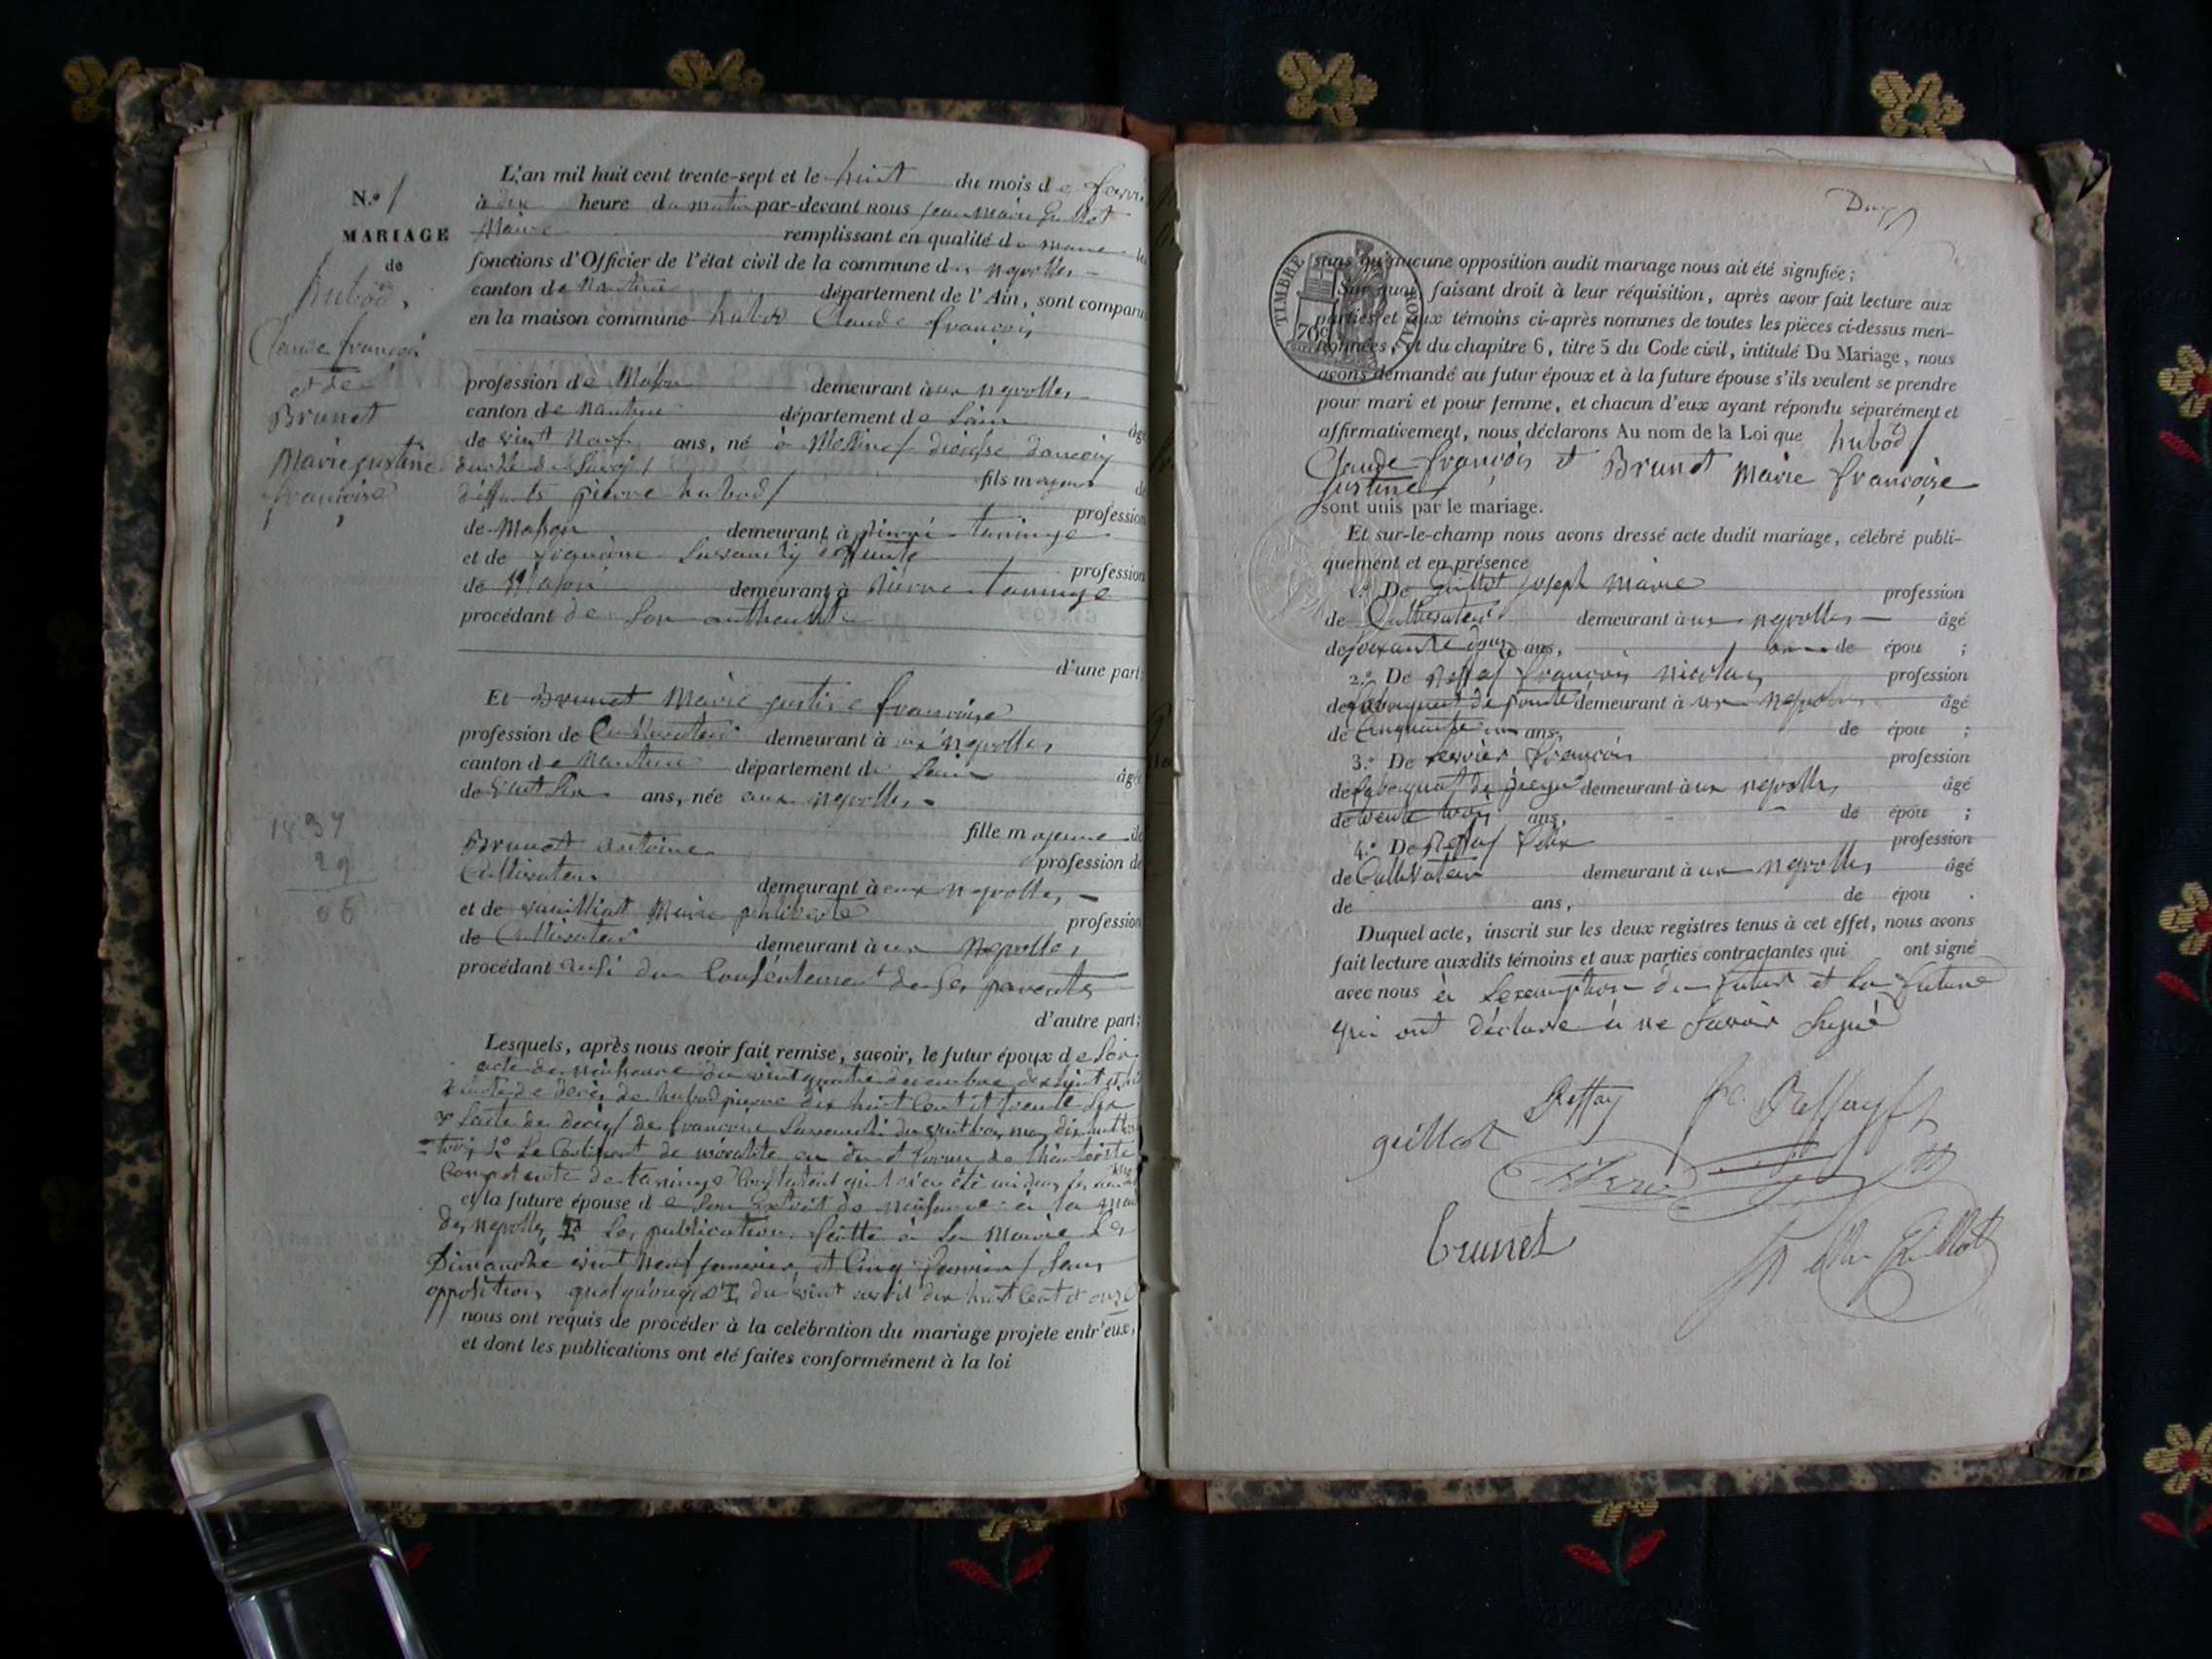 N.o 1
MARIAGE
de
hubod,
Claude françois
et de
Brunet
Marie justine
françoise
1837
29
08
L'an mil huit cent trente-sept et le huit du mois de
à dix heure du matin par-devant nous jean Marie Guillot
Maire remplissant en qualité de maire
fonctions d'Officier de l'état civil de la commune des neyrolles
canton de Nantua département de l'Ain, sont comparu
en la maison commune hubod Claude françois
profession de Mason demeurant aux neyrolles
canton de nantua département de Lain
âgé
de vint neuf ans, né à
duché de Savoj
deffunts pierre hubod fils majeur de
profession
de Mason demeurant à taninge
et de deffunte
profession
de Mason demeurant à taninge
procédant de son
d'une part;
Et Brunet Marie justine françoise
profession de Cultivateur demeurant à aux neyrolles
canton de Nantua département de Lain
âgé
de vint six ans, née aux neyrolles
fille majeure de
Brunet antoine
profession de
Cultivateur demeurant à aux neyrolles
et de Marie philiberte
profession
de Cultivateur demeurant à aux Neyrolles
procédant du Consentement de ses parents
d'autre part;
Lesquels, après nous avoir fait remise, savoir, le futur époux de son
acte de naissance du vint quatre decembre
acte de decès de hubod pierre dix huit Cent et trente six
Lacte de decès de françoise du vint trois may dix huit
trois Le Certificat de moralité
Competante de taninge
et la future épouse de son Extrait de naissance à la
des neyrolles les publication faitte à la Mairie Les
Dimanche vint neuf janvier et Cinq fevrier sans
opposition du vint avril dix huit Cent et onze
nous ont requis de procéder à la celébration du mariage projeté entr'eux,
et dont les publications ont été faites conformément à la loi
TIMBRE ROYAL
70c
sans qu'aucune opposition audit mariage nous ait été signifiée;
Sur quoi, faisant droit à leur réquisition, après avoir fait lecture aux
parties et aux témoins ci-après nommes de toutes les pièces ci-dessus men-
tionnées, et du chapitre 6, titre 5 du Code civil, intitulé Du Mariage, nous
avons demandé au futur époux et à la future épouse s'ils veulent se prendre
pour mari et pour femme, et chacun d'eux ayant répondu séparément et
affirmativement, nous déclarons Au nom de la Loi que hubod
Claude françois et Brunet Marie françoise
justine
sont unis par le mariage.
Et sur-le-champ nous avons dressé acte dudit mariage, célébré publi-
quement et en présence
1.o De Guillot joseph Marie profession
de Cultivateur demeurant à aux neyrolles âgé
de soixante ans, de épou ;
2.o De Reffay françois nicolas profession
de demeurant à aux Neyrolles âgé
de Cinquante ans, de épou ;
3.o De françois profession
de demeurant à aux neyrolles âgé
de trente trois ans, de épou ;
4.o De Reffay felix profession
de Cultivateur demeurant à aux neyrolles âgé
de ans, de épou .
Duquel acte, inscrit sur les deux registres tenus à cet effet, nous avons
fait lecture auxdits témoins et aux parties contractantes qui ont signé
avec nous à Lexemption du futur et la future
qui ont déclaré à ne savoir signé
Reffay
Reffay
guillot
brunet
Guillot